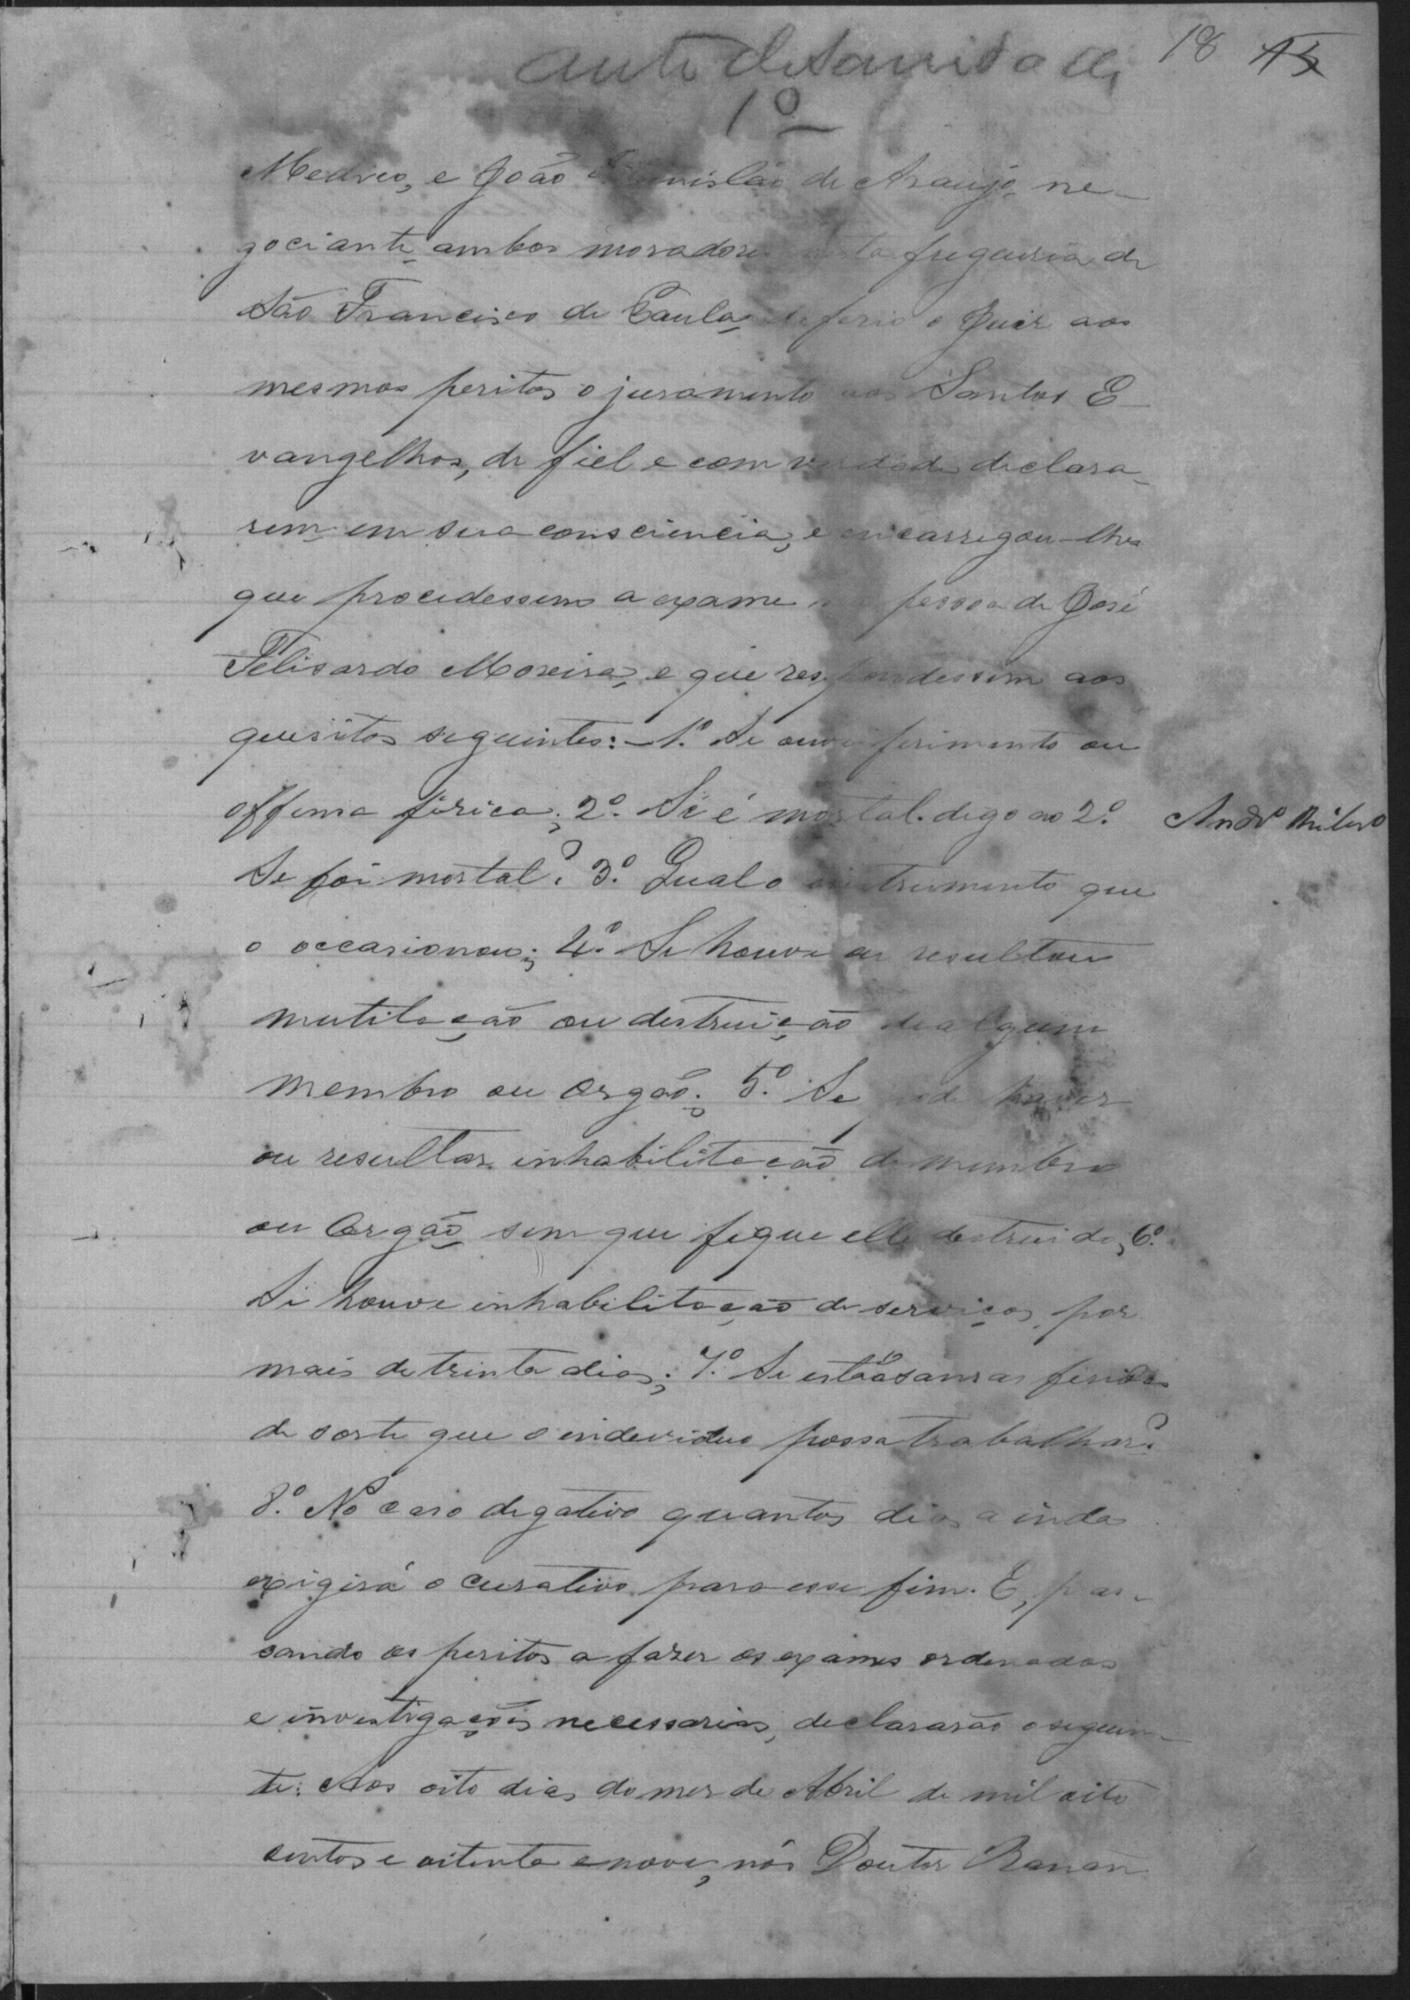 auto de sanidade
18 15
1º
Medico, e João de Araujo ne-
gociante ambos moradores nesta freguesia de
São Francisco de Paula, deferio o Juiz aos
mesmos peritos o juramento aos Santos E
vangelhos, de fiel e com verdade declara-
rem em sua consciencia, e encarregou-lhes
que procedessem a exame na pessoa de José
Felisardo Moreira, e que respondessem aos
quesitos seguintes: - 1.º Se ouve ferimento ou
offensa fisica; 2.º Si é mortal. digo ao 2.º
Se foi mortal? 3.º Qual o instrumento que
o occasionou; 4.º Se houve ou resultou
mutilação ou destruição de algum
membro ou orgão; 5.º Se pode haver
ou resultar inhabilitação de membro
ou Orgão sem que fique elle destruido, 6.º
Si houve inhabilitação de serviços por
mais de trinta dias; 7.º Se estão sans as feridas
de sorte que o individuo possa trabalhar?
8.º No caso degativo quantos dias ainda
exigirá o curativo para esse fim. E, pas-
sando os peritos a fazer os exames ordenados
e investigações necessarias, declararão o seguin-
te: Aos oito dias do mes de Abril de mil oito
centos e oitenta e nove, nós Doutor